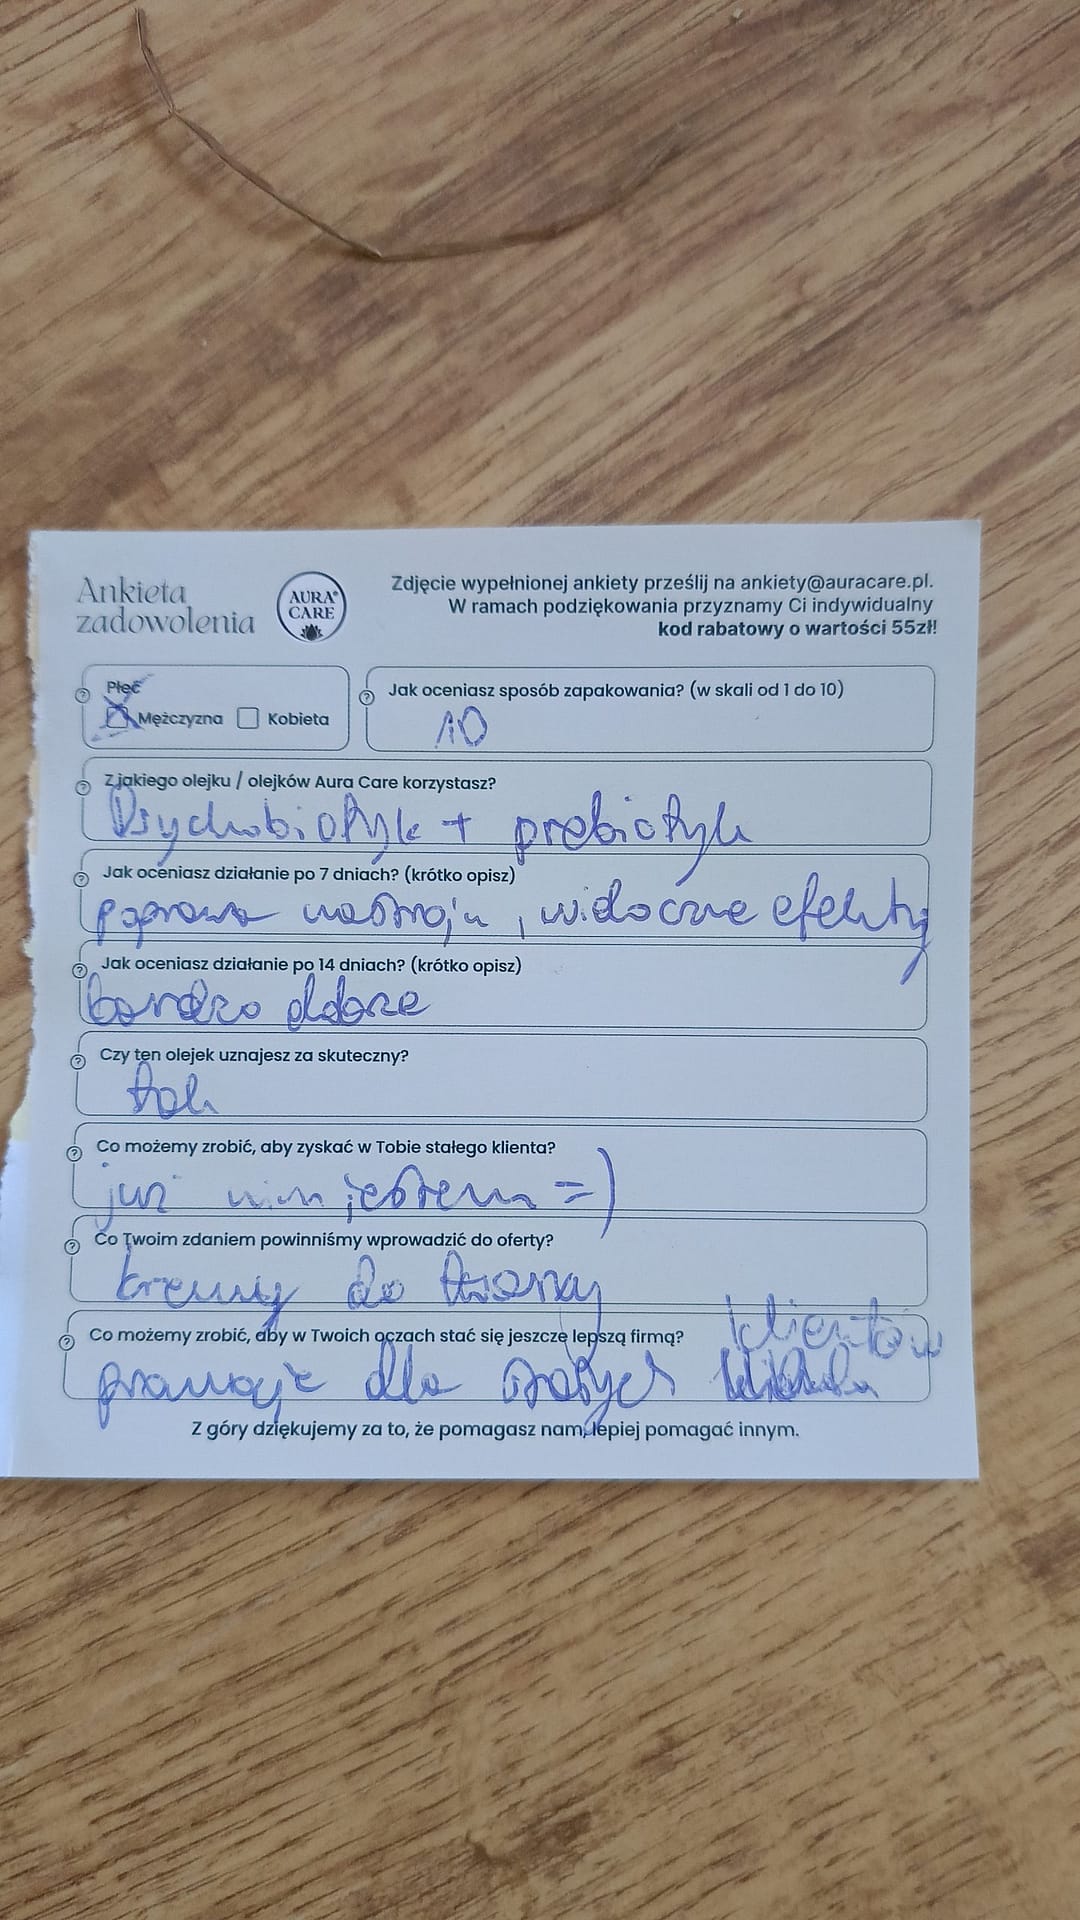 Ankieta
zadowolenia
AURA®
CARE
Zdjęcie wypełnionej ankiety prześlij na ankiety@auracare.pl.
W ramach podziękowania przyznamy Ci indywidualny
kod rabatowy o wartości 55zł!
Płeć
Mężczyzna Kobieta
Jak oceniasz sposób zapakowania? (w skali od 1 do 10)
10
Z jakiego olejku / olejków Aura Care korzystasz?
Psychobiotyk + prebiotyk
Jak oceniasz działanie po 7 dniach? (krótko opisz)
poprawa nastroju, widoczne efekty
Jak oceniasz działanie po 14 dniach? (krótko opisz)
bardzo dobrze
Czy ten olejek uznajesz za skuteczny?
tak
Co możemy zrobić, aby zyskać w Tobie stałego klienta?
już nim jestem =)
Co Twoim zdaniem powinniśmy wprowadzić do oferty?
kremy do twarzy
Co możemy zrobić, aby w Twoich oczach stać się jeszcze lepszą firmą?
promocje dla stałych klientów
Z góry dziękujemy za to, że pomagasz nam, lepiej pomagać innym.